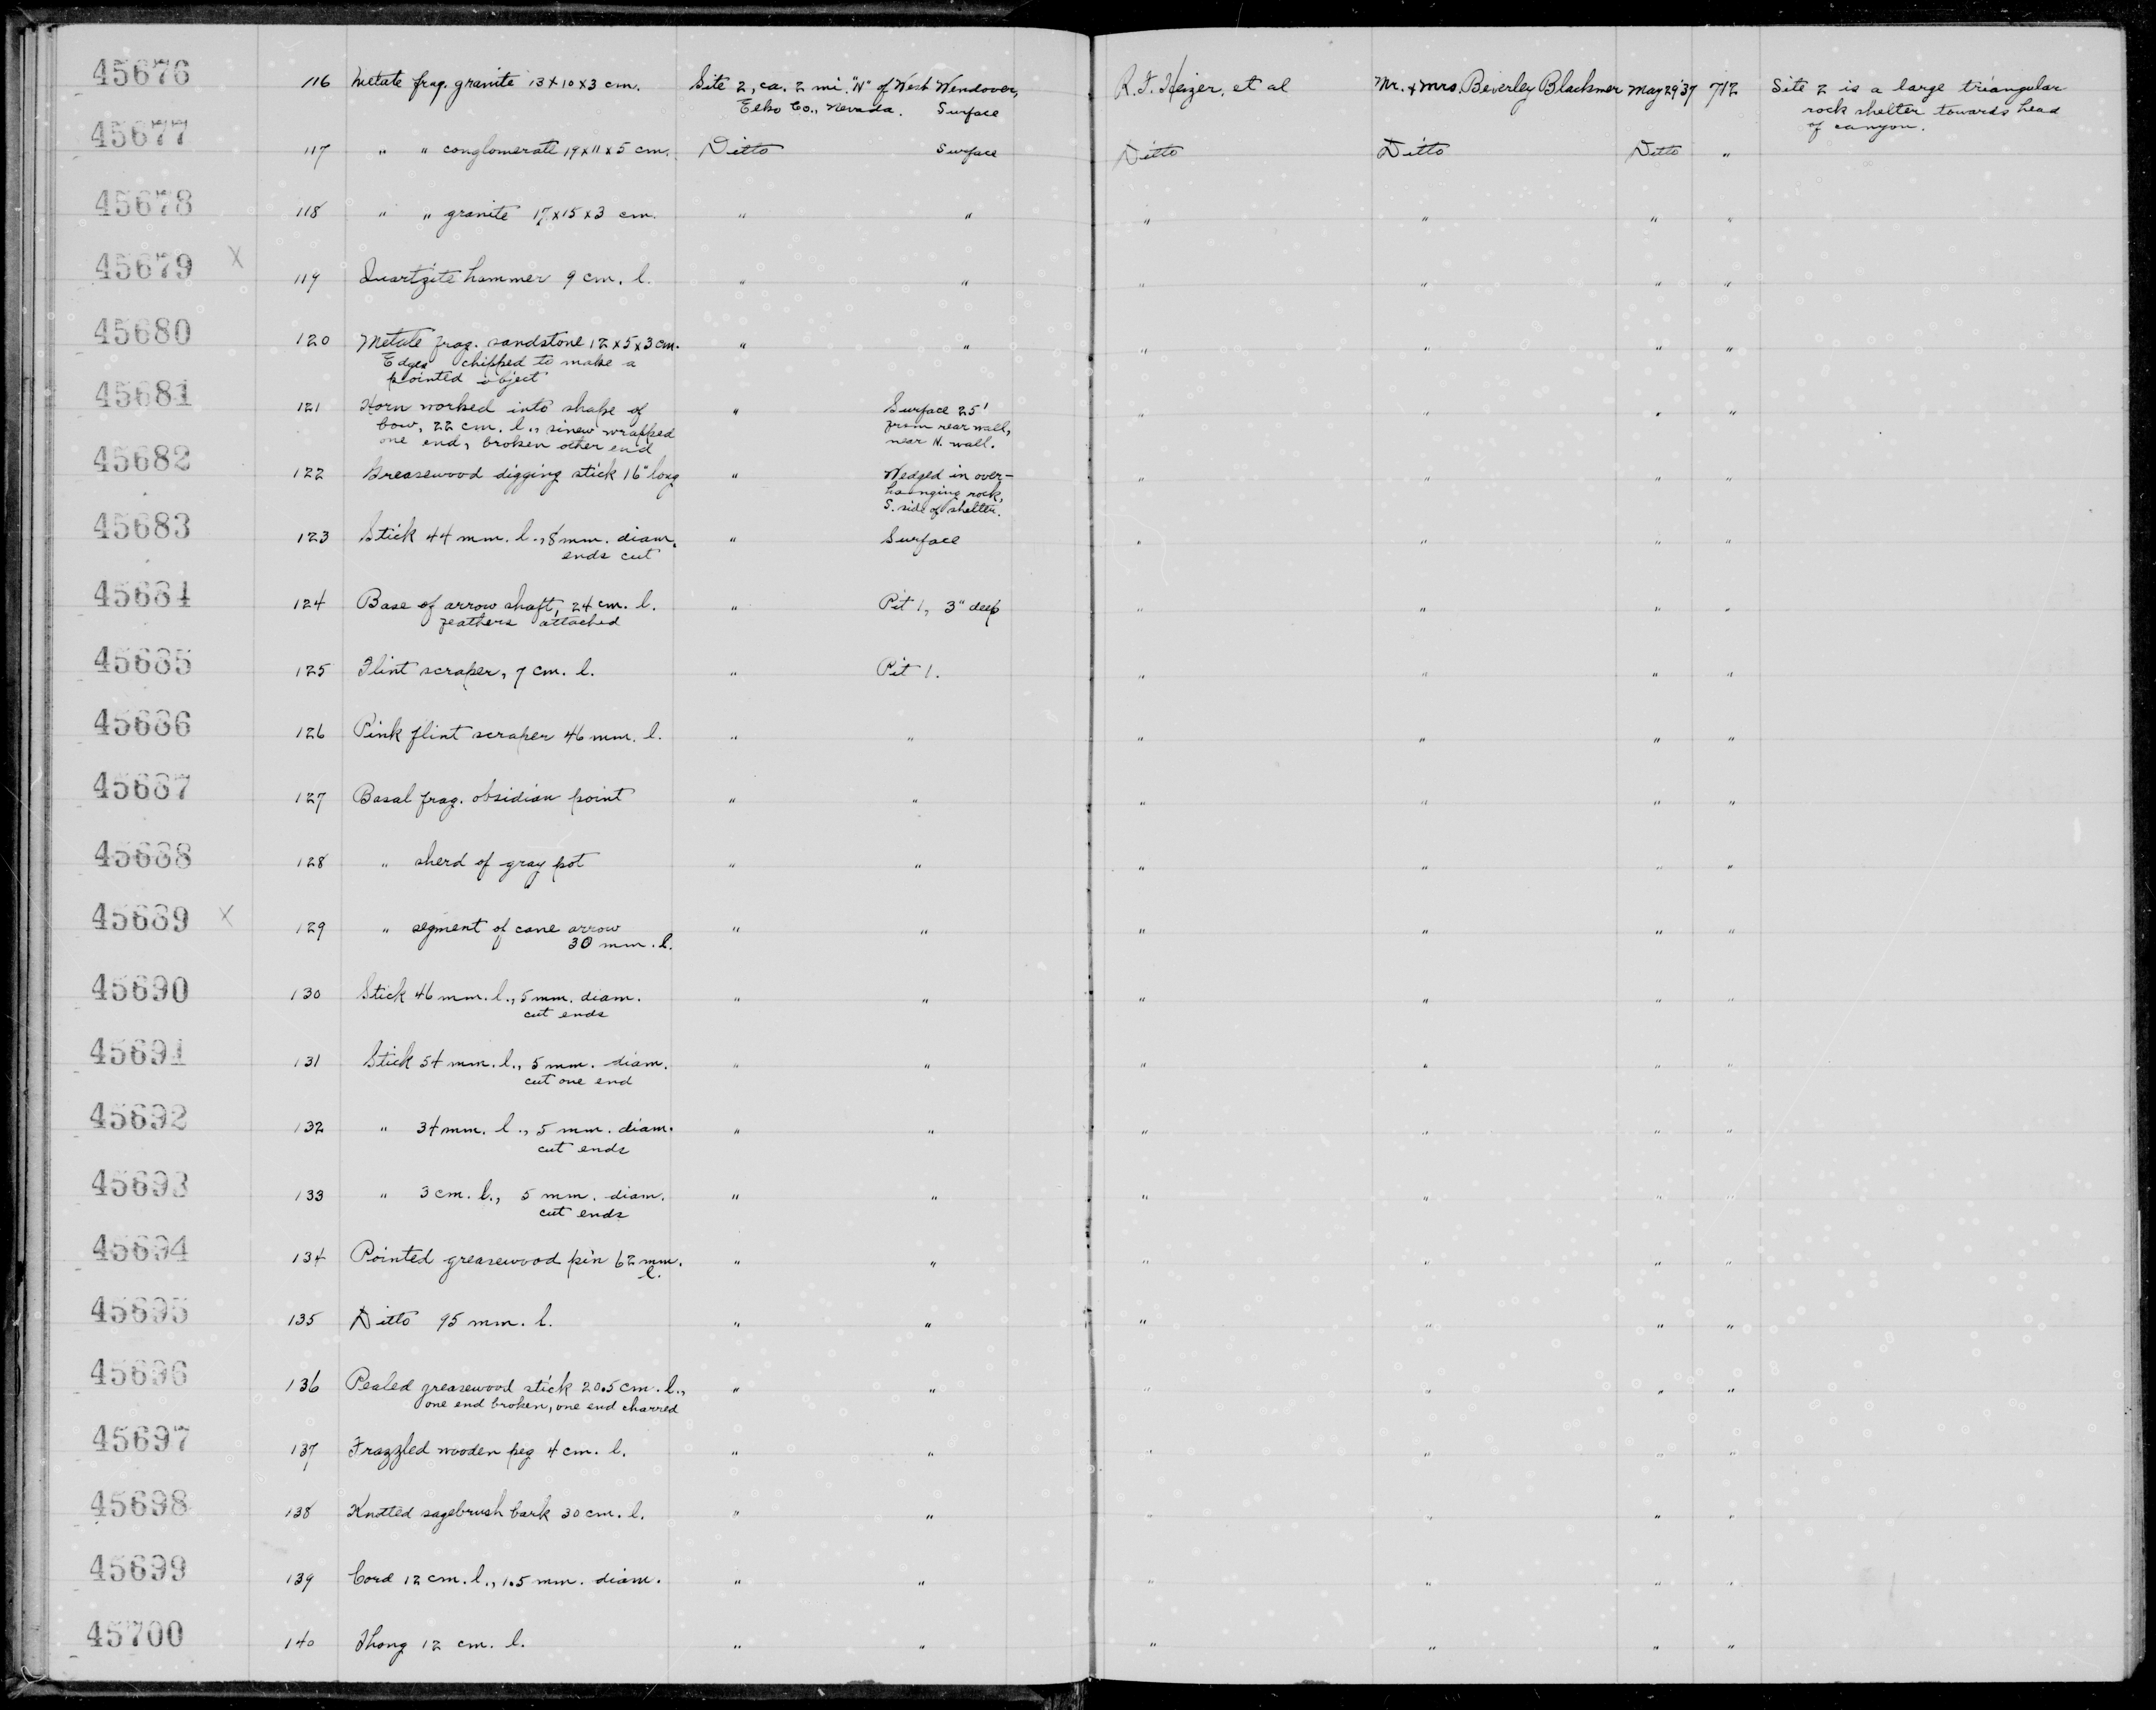 45676 116 Metate frag. granite 13 x 10 x 3 cm. Site 2, ca. 2 mi. "N" of West Wendover, R.F. Heizer, et al Mr. & Mrs. Beverley Blackmer May 29 '37 712 Site 2 is a large triangular
Elko Co., Nevada. Surface rock shelter towards head
of canyon.
45677 117 " " conglomerate 19 x 11 x 5 cm. Ditto Surface Ditto Ditto Ditto "
45678 118 " " granite 17 x 15 x 3 cm. " " " " " "
45679 X 119 Quartzite hammer 9 cm. l. " " " " " "
45680 120 Metate frag. sandstone 12 x 5 x 3 cm. " " " " " "
Edges chipped to make a
pointed object
45681 121 Horn worked into shape of " Surface 25' " " " "
bow, 22 cm. l., sinew wrapped from rear wall,
one end, broken other end near N. wall.
45682 122 Greasewood digging stick 16" long " Wedged in over- " " " "
hanging rock,
S. side of shelter.
45683 123 Stick 44 mm. l., 8 mm. diam. " Surface " " " "
ends cut
45684 124 Base of arrow shaft, 24 cm. l. " Pit 1, 3" deep " " " "
feathers attached
45685 125 Flint scraper, 7 cm. l. " Pit 1. " " " "
45686 126 Pink flint scraper 46 mm. l. " " " " " "
45687 127 Basal frag. obsidian point " " " " " "
45688 128 " sherd of gray pot " " " " " "
45689 X 129 " segment of cane arrow " " " " " "
30 mm. l.
45690 130 Stick 46 mm. l., 5 mm. diam. " " " " " "
cut ends
45691 131 Stick 54 mm. l., 5 mm. diam. " " " " " "
cut one end
45692 132 " 34 mm. l., 5 mm. diam. " " " " " "
cut ends
45693 133 " 3 cm. l., 5 mm. diam. " " " " " "
cut ends
45694 134 Pointed greasewood pin 62 mm. " " " " " "
l.
45695 135 Ditto 95 mm. l. " " " " " "
45696 136 Pealed greasewood stick 20.5 cm. l., " " " " " "
one end broken, one end charred
45697 137 Frazzled wooden peg 4 cm. l. " " " " " "
45698 138 Knotted sagebrush bark 30 cm. l. " " " " " "
45699 139 Cord 12 cm. l., 1.5 mm. diam. " " " " " "
45700 140 Thong 12 cm. l. " " " " " "